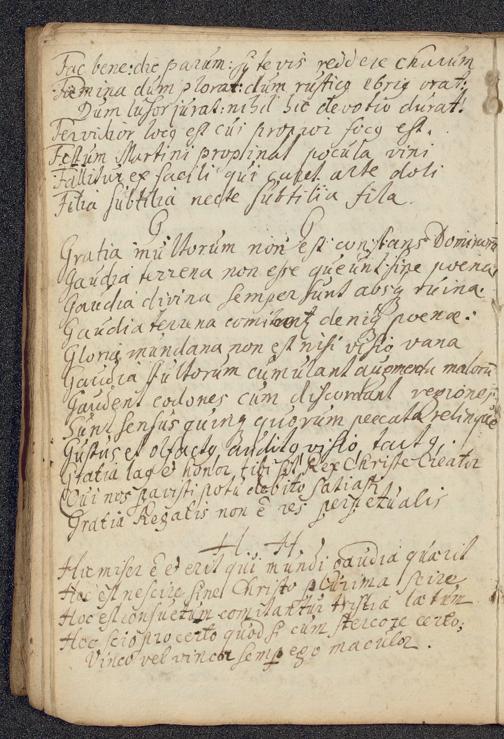 Fac bene: dic parum: si te vis reddere charum
Fæmina dum plorat: dum rusticq ebriq orat:
Dum lusor jurat: nihil hic devotio durat.
Fervidior locq est cui propior focq est.
Festum Martini propinat pocula vini
Fallitur ex facili qui caret arte doli
Filia subtilia necte subtilia fila.
G G
Gratia multorum non est constans Dominorũ
Gaudia terrena non esse queunt sine poena
Gaudia divina semper sunt absq ruina.
Gaudia terrena comitant deniq poenæ.
Gloria mundana non est nisi visio vana
Gaudia stultorum cumulant augmenta malorũ
Gaudent codones cum discordant regiones
Sunt sensus quinq quorum peccata relinque
Gustus et olfactq auditq visio, tactq.
Gratia laq & honor tibi sit Rex Christe Creator
Qui nos pavisti potu debito satiasti
Gratia Regalis non ẽ res perpetualis
H H
Hic miser ẽ et erit qui mundi gaudia quærit
Hoc est nescire sine Christo plurima scire
Hoc est consuetum comitantur tristia lætum
Hoc scio pro certo quod si cum stercore certo;
Vinco vel vincor semp ego maculor.